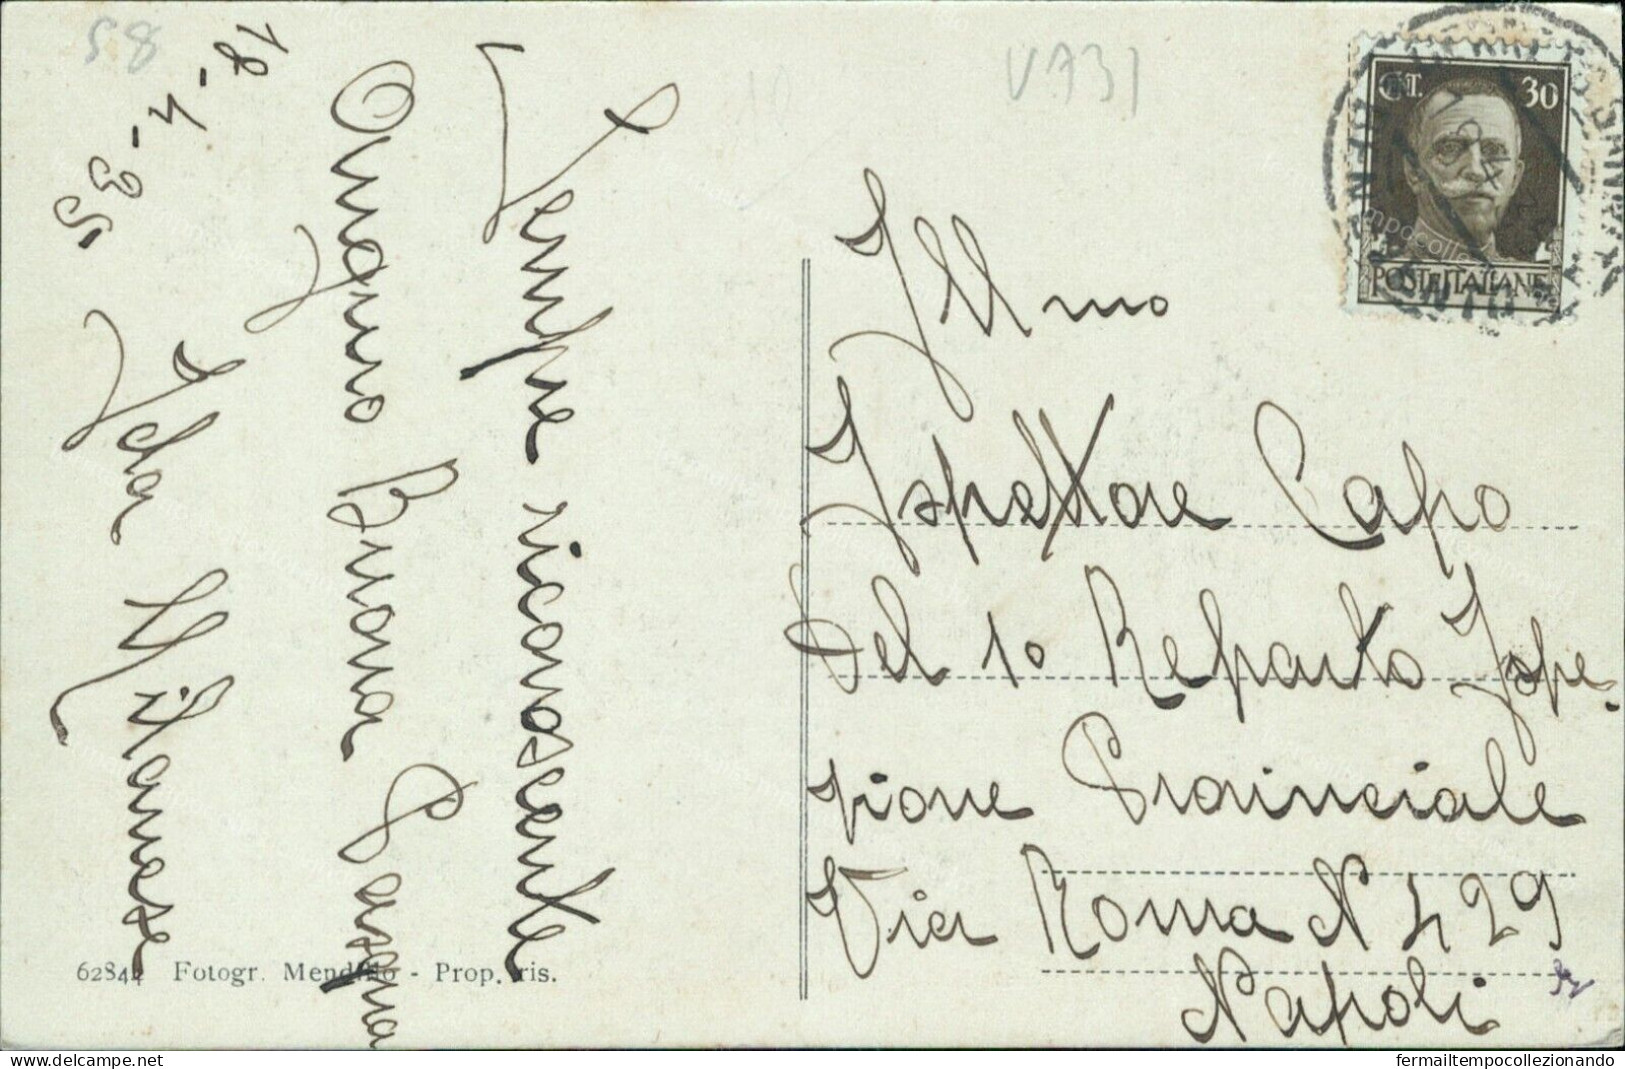 58
V A 31
18-4-35
Sempre riconoscente
Auguro Buona Pasqua
Ida Milanese
62844 Fotogr. Mendillo - Prop. ris.
Ill mo
Ispettore Capo
Del 1º Reparto Ispe.
zione Provinciale
Via Roma N 429
Napoli
CENT. 30
POSTE ITALIANE
delcampe.net
fermailtempocollezionando